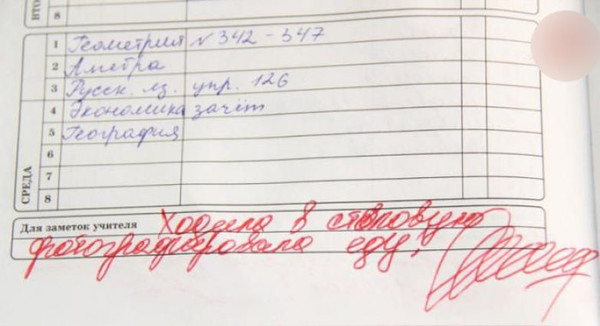 ВТО
8
1 Геометрия № 342 - 347
2 Алгебра
3 Русск. яз. упр. 126
4 Экономика зачёт
5 География
6
7
8
СРЕДА
Для заметок учителя Ходила в столовую
фотографировала еду!